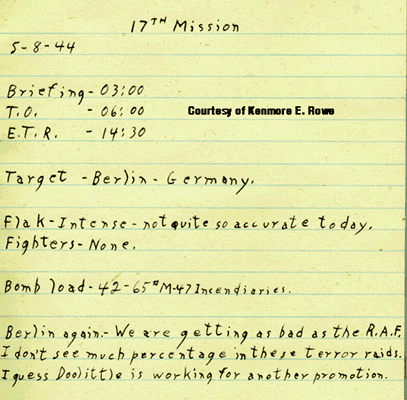 17TH Mission
5-8-44
Briefing - 03:00
T.O. - 06:00 Courtesy of Kenmore E. Rowe
E.T.R. - 14:30
Target - Berlin - Germany.
Flak - Intense - not quite so accurate today.
Fighters - None.
Bomb load - 42 - 65# M-47 Incendiaries.
Berlin again. - We are getting as bad as the R.A.F.
I don't see much percentage in these terror raids.
I guess Doolittle is working for another promotion.